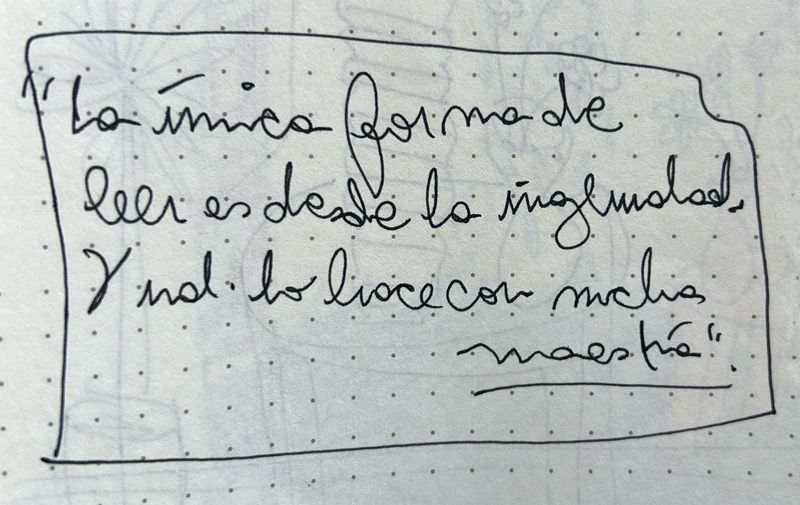 "La única forma de
leer es desde la ingenuidad.
Y ud. lo hace con mucha
maestría".